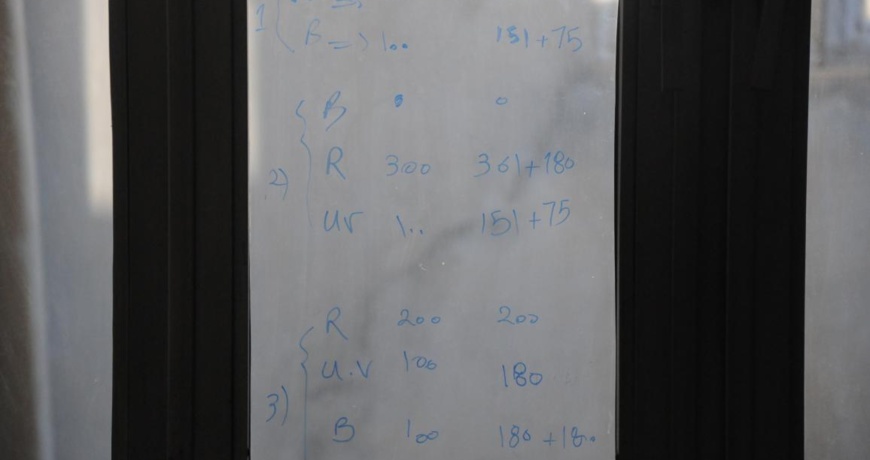 1) B => 100 151+75
B 0 0
R 300 361+180
2)
UV 100 151+75
R 200 200
U.V 100 180
3)
B 100 180+180